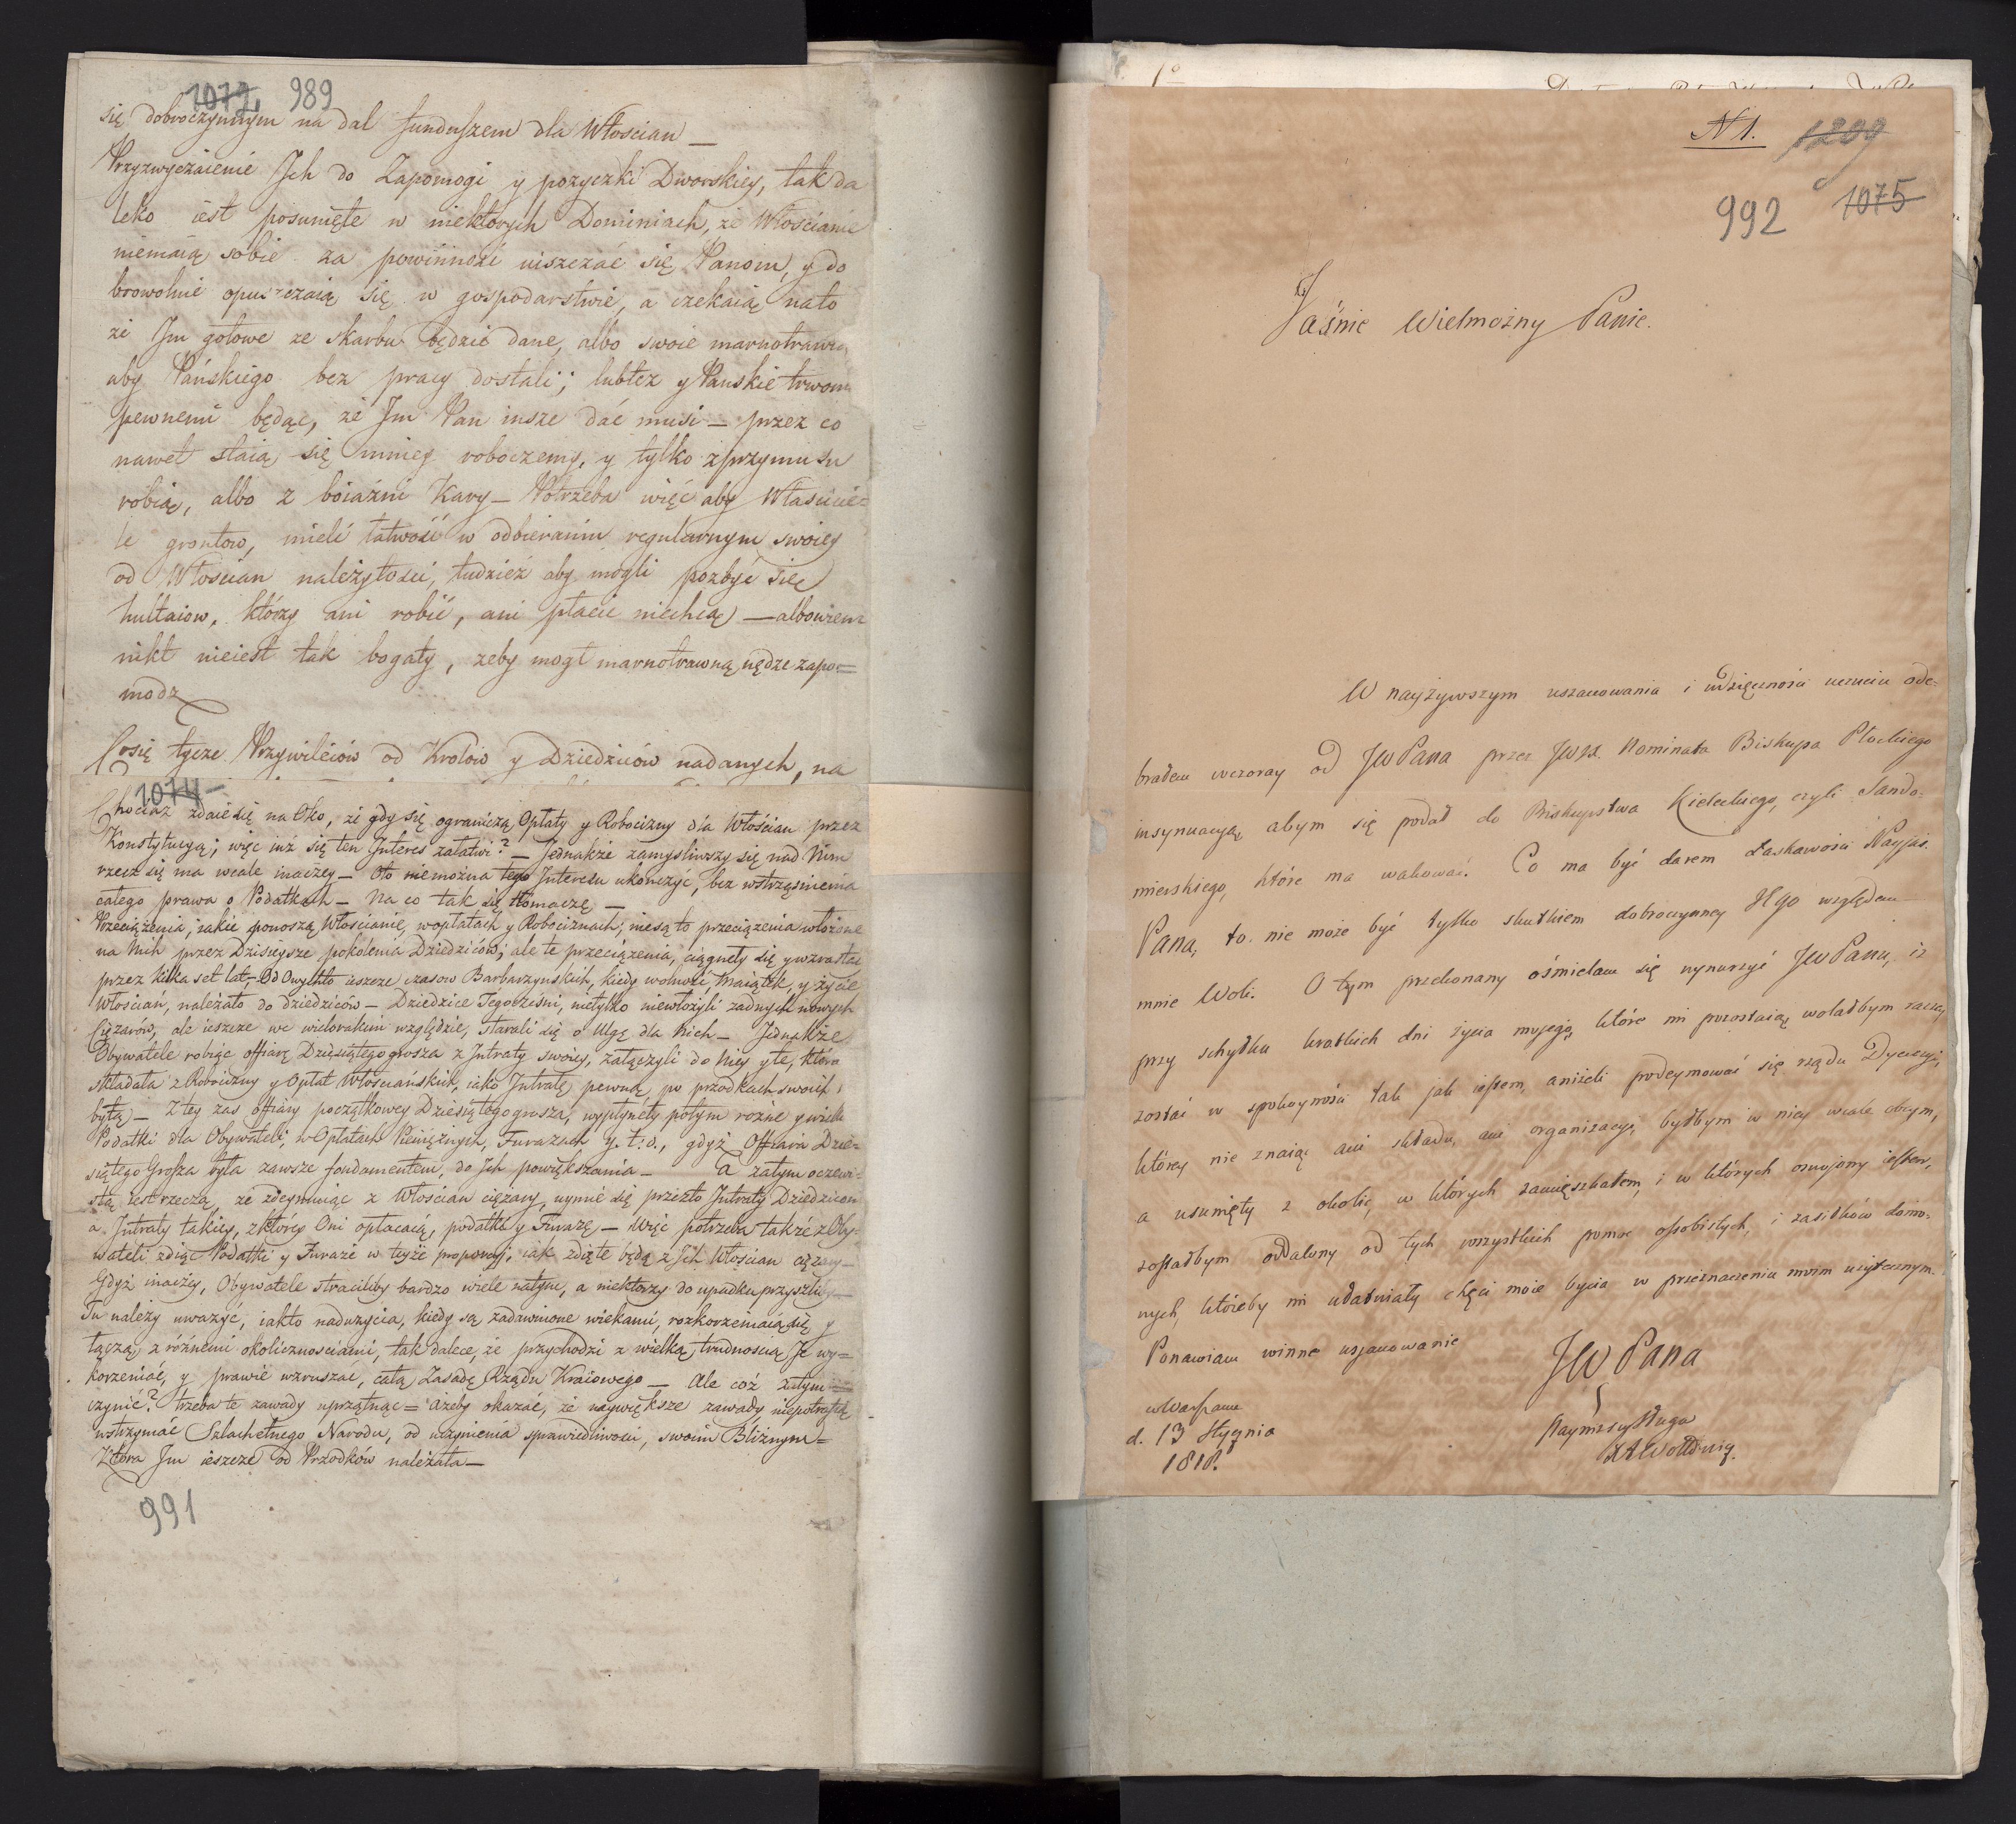 1072, 989
się dobroczynnym na dal funduszem dla Włoscian _
Przyzwyczaienie Jch do Zapomogi y pozyczki Dworskiey, tak da
leko iest posunięte w niektórych Dominiach, ze Włoscianie
niemaią sobie za powinność uiszczać się Panom, y do
browolnie opuszczaią się w gospodarstwie, a czekaią nato
że Jm gotowe ze skarbu będzie dane, albo swoie marnotrawią
aby Pańskiego bez pracy dostali; lubtez y Panskie trwonią
pewnemi będąc, że Jm Pan insze dać musi _ przez co
nawet staią się mniey roboczemi, y tylko z przymusu
robią, albo z boiaźni Kary _ Potrzeba więc aby Własicie=
le grontow, mieli łatwość w odbieraniu regularnym swoiey
od Włoscian należytosci, tudzież aby mogli pozbyć się
hultaiow, którzy ani robić, ani płacić niechcą _ albowiem
nikt nieiest tak bogaty, zeby mogł marnotrawną nędze zapo=
modz
Cosię tycze Przywileiów od Krolów y Dziedziców nadanych, na
1074
Chociaz zdaie się na Oko, że gdy się ograniczą Opłaty y Robocizny dla Włościan przez
Konstytucyą; więc iuż się ten Jnteres załatwi? _ Jednakże zamysliwszy się nad Nim
rzecz się ma wcale inaczey _ Oto niemożna tego Jnteresu ukonczyć, bez wstrząsnienia
całego prawa o Podatkach _ Na co tak się tłomaczę _
Przeciążenia, iakie ponoszą Włoscianie, wopłatach y Robociznach; niesą to przeciążenia włożone
na Nich przez Dzisieysze pokolenia Dziedziców; ale te przeciążenia, ciągnęły się y wzrastały
przez kilka set lat, _ Od Owychto ieszcze czasow Barbarzynskich, kiedy wolność, Maiątek, y życie
Włościan, należało do dziedziców _ Dziedzice Tegocześni, nietylko niewłożyli żadnych nowych
Ciężarów, ale ieszcze we wielorakim względzie, starali się o Ulgę dla Nich _ Jednakże
Obywatele robiąc offiarę Dziesiątego grosza z Jntraty swoiey, załączyli do Niey y te, która
składała z Robocizny y Opłat Włościańskich, iako Jntratę pewną, po przodkach swoich
bytą _ Z tey zas offiary początkowey Dziesiątego grosza, wypłynęły potym rożne y wiele
Podatki dla Obywateli, w Opłatach Pieniężnych, Furazach y. t: d., gdyż Offiara Dzie=
siątego Grosza była zawsze fondamentem, do Jch powiększania _ a zatym oczewi=
stą iest rzeczą, ze zdeymuiąc z Włoscian ciężary, uymie się przezto Jntraty Dziedzicom
a Jntraty takiey, z którey Oni opłacaią, podatki y Furazę _ więc potrzeba także z Oby=
wateli zdiąć Podatki y Furaże w teyże proporcyi, iak zdięte będą z Jch Włoscian ciężary _
Gdyż inaczey, Obywatele straciliby bardzo wiele natym, a niektorzy do upadku przyszliby _
Tu należy uważyć, iakto nadużycia, kiedy są zadawnione wiekami, rozkorzeniaią się y
łączą z różnemi okolicznościami, tak dalece, że przychodzi z wielką trudnoscią Je wy=
korzeniać, y prawie wzruszać, całą Zasadę Rządu Kraiowego _ Ale coż zatym
czynić? trzeba te zawady uprzątnąć = ażeby okazać, że naywiększe zawady niepotrafią
wstrzymać Szlachetnego Narodu, od uczynienia sprawiedliwosci, swoim Bliźnym =
Która Jm ieszcze od Przodków należała _
991
N 1. 1209
992 1075
Jaśnie Wielmożny Panie.
W nayżywszym uszanowania i wdzięczności uczuciu ode-
brałem wczoray od JW Pana przez JWX. Nominata Biskupa Płockiego
insynuacyą, abym się podał do Biskupstwa Kieleckiego, czyli Sando-
mirskiego, które ma wakować. Co ma być darem Łaskawości Nayjaś.
Pana, to nie może być tylko skutkiem dobroczynney JEgo względem
mnie Woli. O tym przekonany ośmielam się wynurzyć JW Panu, iż
przy schyłku krótkich dni życia mojego, które mi pozostaią, wolałbym raczey
zostać w spokoyności tak jak iestem, aniżeli podeymować się rządu Dyecezyi,
którey nie znaiąc ani składu, ani organizacyi, byłbym w niey wcale obcym,
a usunięty z okolic, w których zamięszkałem, i w których oswojony iestem,
zostałbym oddalony od tych wszystkich pomoc osobistych, i zasiłków domo-
wych, któreby mi ułatwiały chęci moie bycia w przeznaczeniu moim użytecznym.
Ponawiam winne uszanowanie
JW Pana
w Warszawie
d. 13 Stycznia
1818.
Nayniższy Sługa